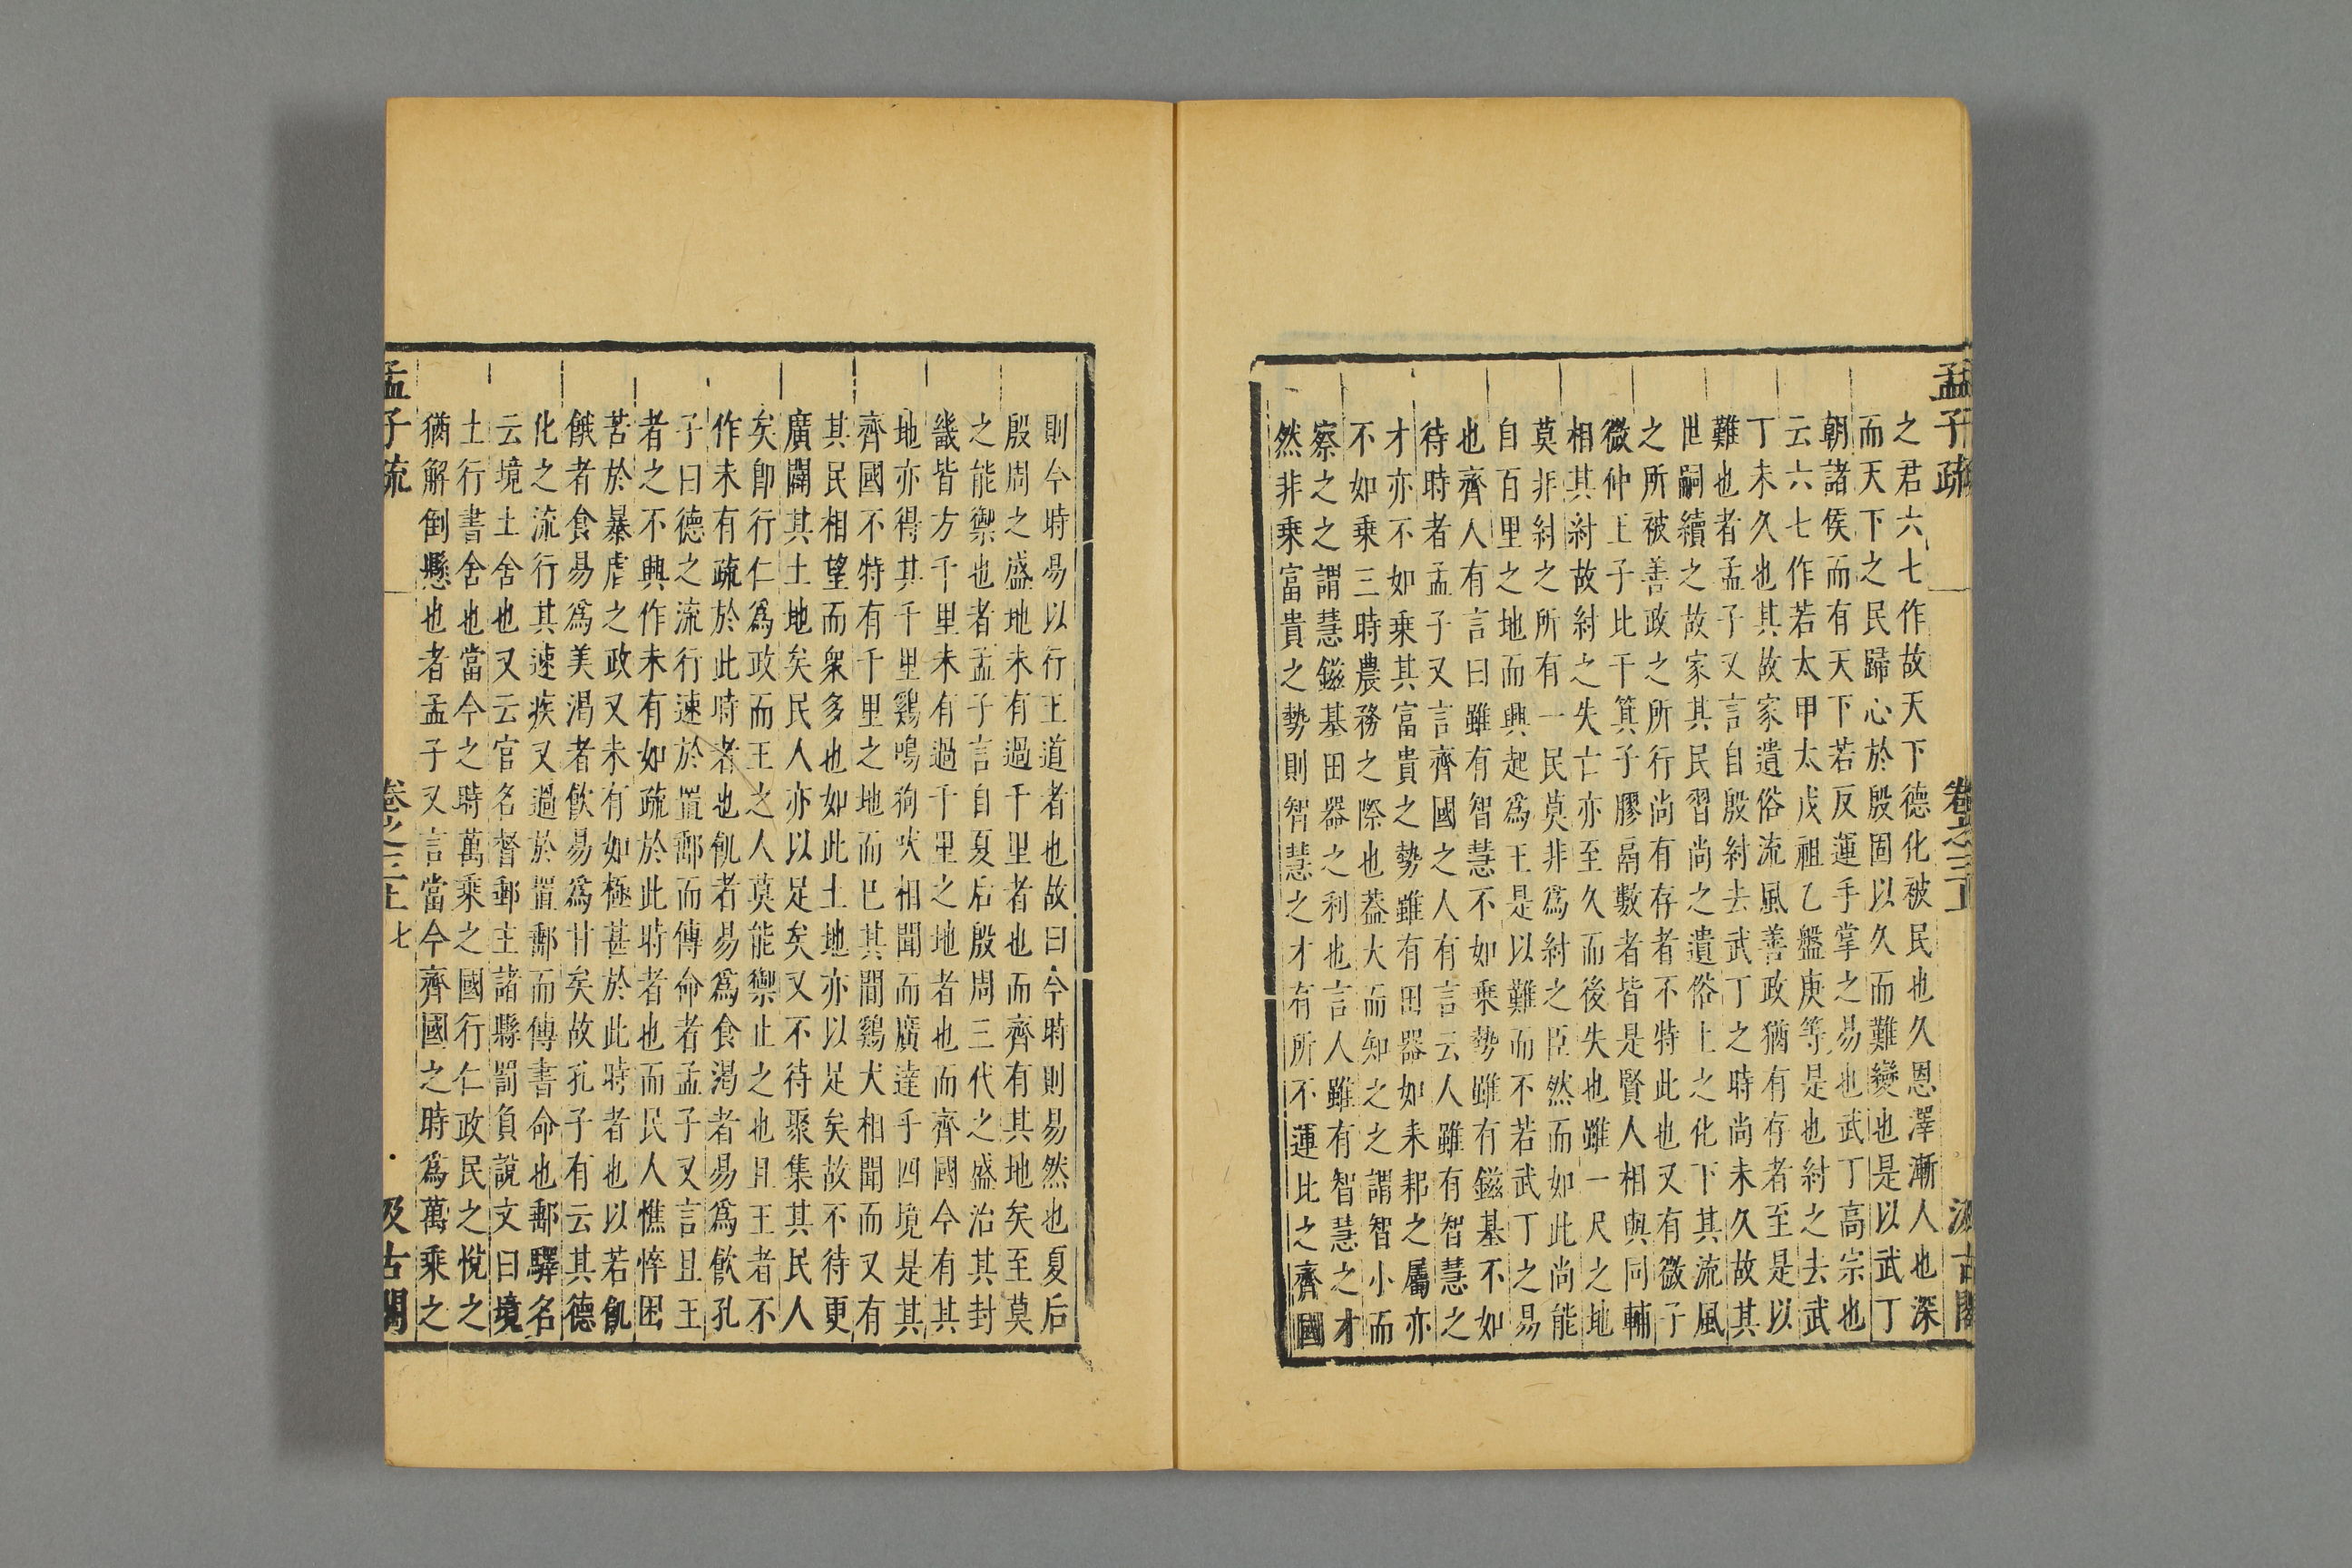 孟子疏 卷之三上 汲古閣
之君六七作故天下德化被民也久恩澤漸人也深
而天下之民歸心於殷固以久而難變也是以武丁
朝諸侯而有天下若反運手掌之易也武丁高宗也
云六七作若太甲太戊祖乙盤庚等是也紂之去武
丁未久也其故家遺俗流風善政猶有存者至是以
難也者孟子又言自殷紂去武丁之時尚未久故其
世嗣續之故家其民習尚之遺俗上之化下其流風
之所被善政之所行尚有存者不特此也又有微子
微仲王子比干箕子膠鬲數者皆是賢人相與同輔
相其紂故紂之失亡亦至久而後失也雖一尺之地
莫非紂之所有一民莫非爲紂之臣然而如此尚能
自百里之地而興起爲王是以難而不若武丁之易
也齊人有言曰雖有智慧不如乘勢雖有鎡基不如
待時者孟子又言齊國之人有言云人雖有智慧之
才亦不如乘其富貴之勢雖有田器如耒耜之屬亦
不如乘三時農務之際也葢大而知之之謂智小而
察之之謂慧鎡基田器之利也言人雖有智慧之才
然非乘富貴之勢則智慧之才有所不運比之齊國
則今時易以行王道者也故曰今時則易然也夏后
殷周之盛地未有過千里者也而齊有其地矣至莫
之能禦也者孟子言自夏后殷周三代之盛治其封
畿皆方千里未有過千里之地者也而齊國今有其
地亦得其千里鷄鳴狗吠相聞而廣達乎四境是其
齊國不特有千里之地而已其間鷄犬相聞而又有
其民相望而衆多也如此土地亦以足矣故不待更
廣闢其土地矣民人亦以足矣又不待聚集其民人
矣卽行仁爲政而王之人莫能禦止之也且王者不
作未有疏於此時者也飢者易爲食渴者易爲飮孔
子曰德之流行速於置郵而傳命者孟子又言且王
者之不興作未有如疏於此時者也而民人憔悴困
苦於暴虐之政又未有如極甚於此時者也以若飢
餓者食易爲美渴者飮易爲甘矣故孔子有云其德
化之流行其速疾又過於置郵而傳書命也郵驛名
云境土舍也又云官名督郵主諸縣罰負說文曰境
土行書舍也當今之時萬乘之國行仁政民之悅之
猶解倒懸也者孟子又言當今齊國之時爲萬乘之
孟子疏 卷之三上 七 汲古閣